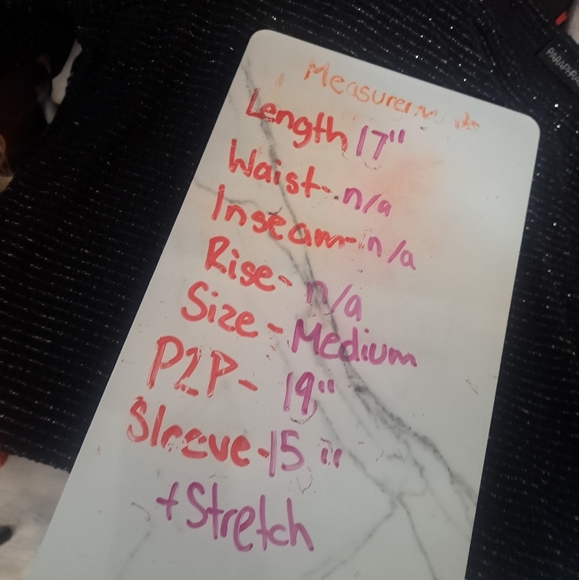 Measurements
Length 17"
Waist- n/a
Inseam- n/a
Rise- n/a
Size - Medium
P2P- 19"
Sleeve-15"
+Stretch